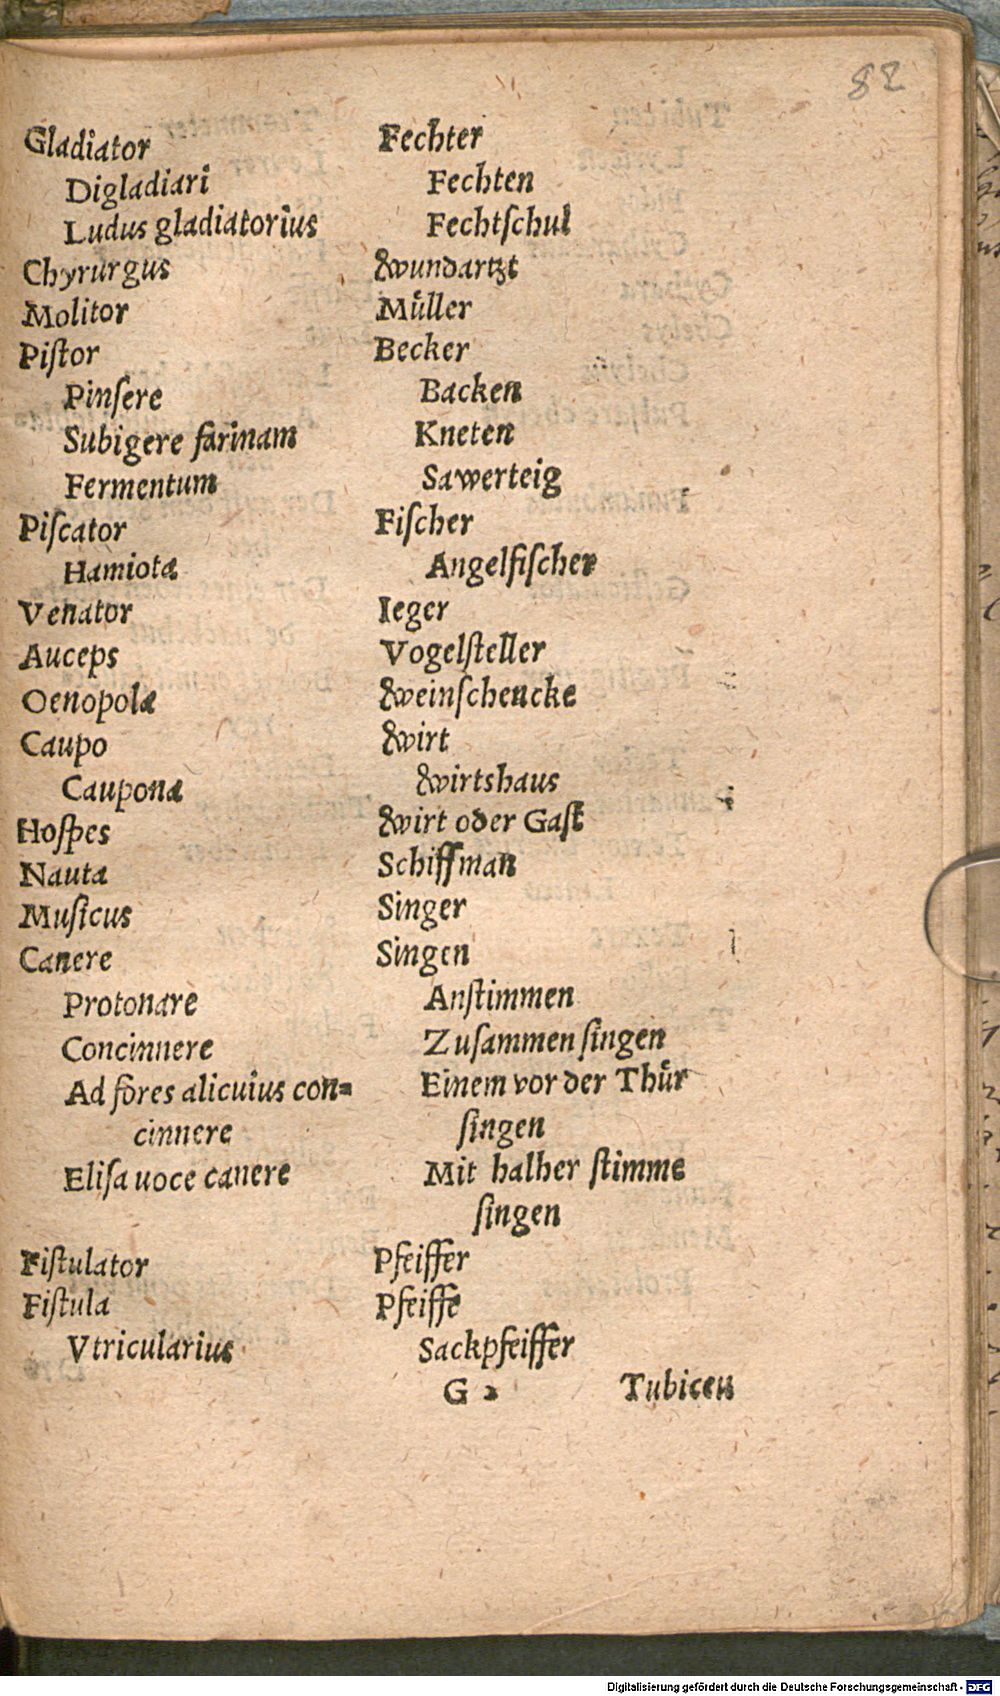 82
Gladiator Fechter
Digladiari Fechten
Ludus gladiatorius Fechtſchul
Chyrurgus Wundartzt
Molitor Müller
Piſtor Becker
Pinſere Backen
Subigere farinam Kneten
Fermentum Sawerteig
Piſcator Fiſcher
Hamiota Angelfiſcher
Venator Ieger
Auceps Vogelſteller
Oenopola Weinſchencke
Caupo Wirt
Caupona Wirtshaus
Hoſpes Wirt oder Gaſt
Nauta Schiffman
Muſicus Singer
Canere Singen
Protonare Anſtimmen
Concinnere Zuſammen ſingen
Ad fores alicuius con= Einem vor der Thür
cinnere ſingen
Eliſa uoce canere Mit halber ſtimme
ſingen
Fiſtulator Pfeiffer
Fiſtula Pfeiffe
Vtricularius Sackpfeiffer
G 2 Tubicen
Digitalisierung gefördert durch die Deutsche Forschungsgemeinschaft - DFG